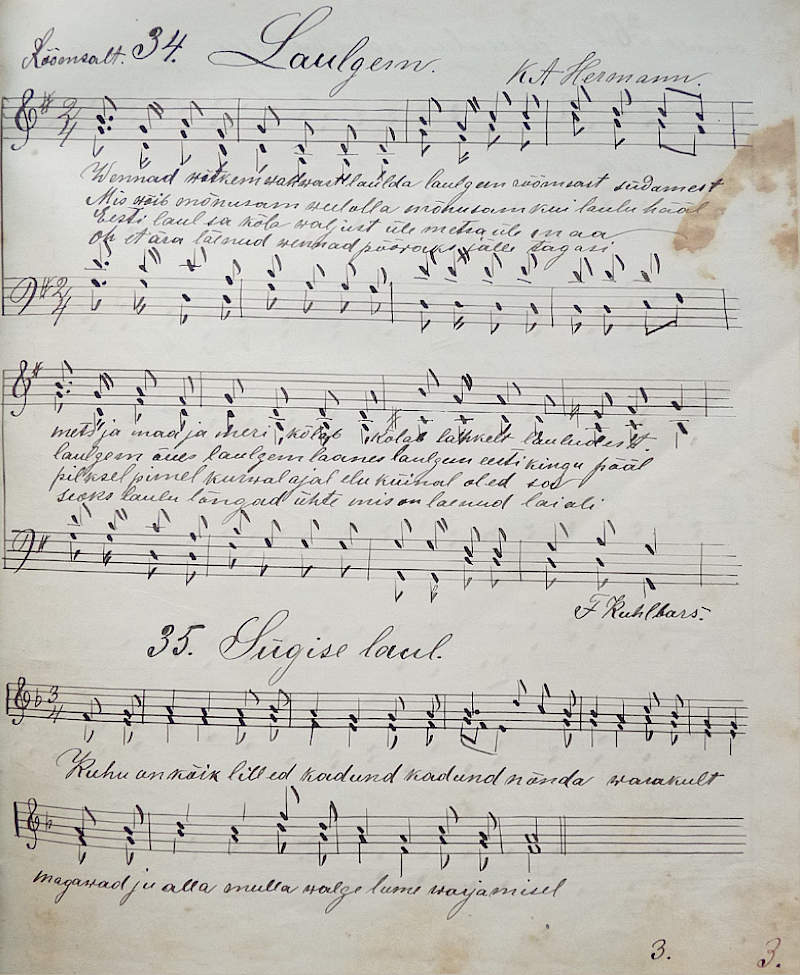 Rõõmsalt. 34. Laulgem.
K A Hermann.
2/4
Wennad wõtkem wakwast laulda laulgem rõõmsast südamest
Mis wõib mõnusam weel olla mõnusam kui laulu hääl
Eesti laul sa kõla waljust üle metsa üle maa
Oh et ära läinud wennad pööraks jälle tagasi
2/4
mets ja maa ja meri kõlab kõlab lahkelt lauludest.
laulgem õues laulgem laanes laulgem eesti kingu pääl
pilksel pimel kurwal ajal elu küinal oled sa
seoks laulu lõngad ühte mis on laenud laiali
F Kuhlbars.
35. Sügise laul.
3/4
Kuhu on kõik lilled kadund kadund nõnda warakult
magawad ju alla mulla walge lume warjamisel
3. 3.